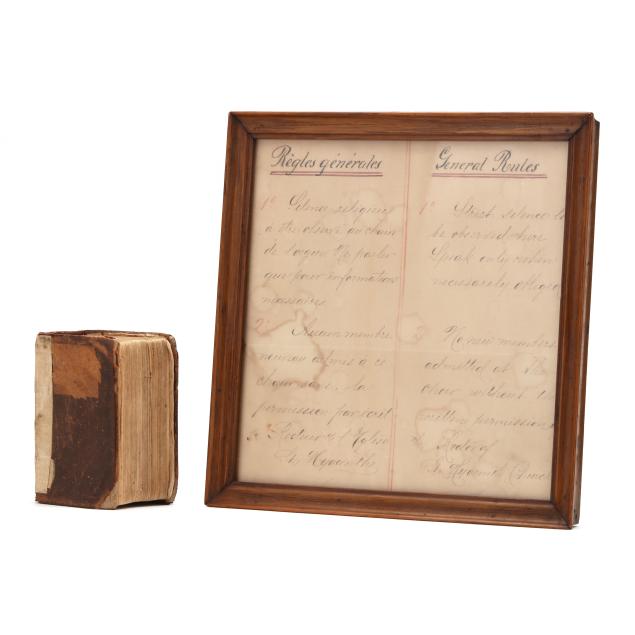 Règles générales
1º Silence religieux
à être observé au chœur
de l'orgue. Ne parler
que pour informations
nécessaires
2º Aucun membre
nouveau admis à ce
chœur sans la
permission par écrit
Recteur de l'Eglise
St Hyacinthe
General Rules
1º Strict silence to
be observed here
Speak only when
necessarily obliged
2 No new members
admitted at
choir without
written permission
Rector of
St Hyacinth Church